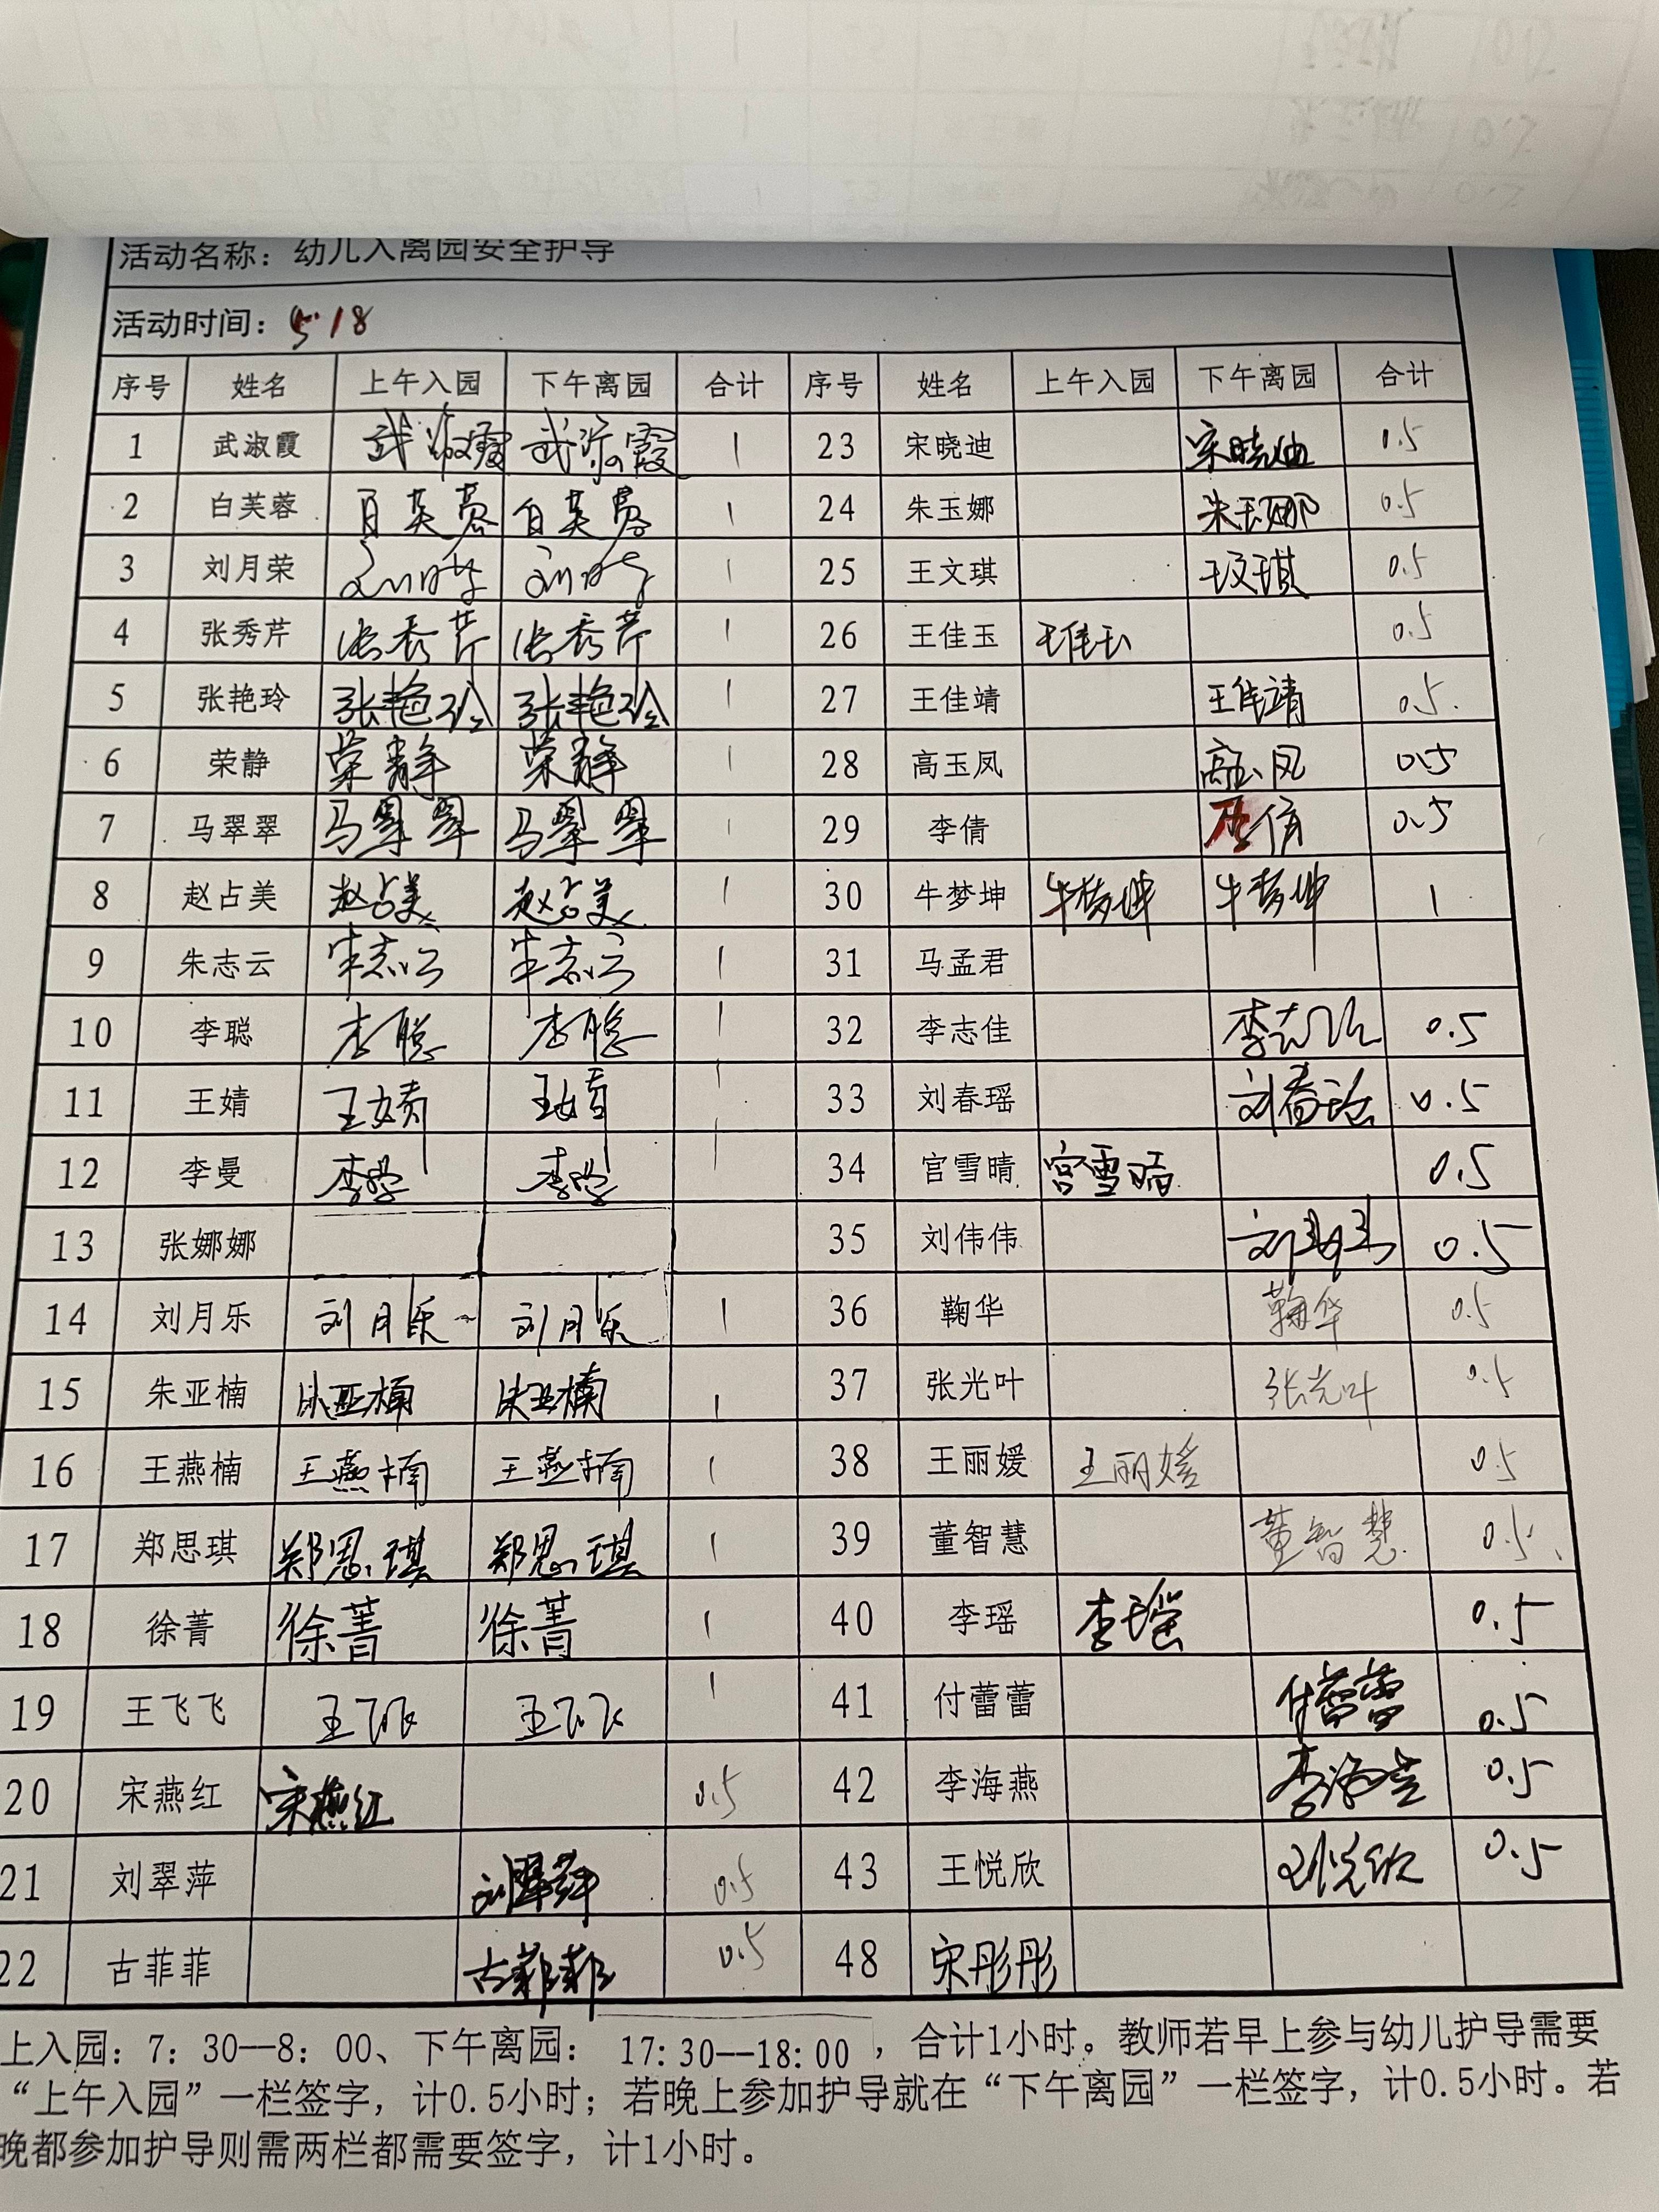 活动名称：幼儿入离园安全护导
活动时间：5.18
序号 姓名 上午入园 下午离园 合计 序号 姓名 上午入园 下午离园 合计
1 武淑霞 武淑霞 武淑霞 1 23 宋晓迪 宋晓迪 0.5
2 白芙蓉 白芙蓉 白芙蓉 1 24 朱玉娜 朱玉娜 0.5
3 刘月荣 刘月荣 刘月荣 1 25 王文琪 王文琪 0.5
4 张秀芹 张秀芹 张秀芹 1 26 王佳玉 王佳玉 0.5
5 张艳玲 张艳玲 张艳玲 1 27 王佳靖 王佳靖 0.5
6 荣静 荣静 荣静 1 28 高玉凤 高玉凤 0.5
7 马翠翠 马翠翠 马翠翠 1 29 李倩 李倩 0.5
8 赵占美 赵占美 赵占美 1 30 牛梦坤 牛梦坤 牛梦坤 1
9 朱志云 朱志云 朱志云 1 31 马孟君
10 李聪 李聪 李聪 1 32 李志佳 李志佳 0.5
11 王婧 王婧 王婧 1 33 刘春瑶 刘春瑶 0.5
12 李曼 李曼 李曼 1 34 宫雪晴 宫雪晴 0.5
13 张娜娜 35 刘伟伟 刘伟伟 0.5
14 刘月乐 刘月乐 刘月乐 1 36 鞠华 鞠华 0.5
15 朱亚楠 朱亚楠 朱亚楠 1 37 张光叶 张光叶 0.5
16 王燕楠 王燕楠 王燕楠 1 38 王丽媛 王丽媛 0.5
17 郑思琪 郑思琪 郑思琪 1 39 董智慧 董智慧 0.5
18 徐菁 徐菁 徐菁 1 40 李瑶 李瑶 0.5
19 王飞飞 王飞飞 王飞飞 1 41 付蕾蕾 付蕾蕾 0.5
20 宋燕红 宋燕红 0.5 42 李海燕 李海燕 0.5
21 刘翠萍 刘翠萍 0.5 43 王悦欣 王悦欣 0.5
22 古菲菲 古菲菲 0.5 48 宋彤彤
上入园：7：30—8：00、下午离园： 17:30—18:00 ，合计1小时。教师若早上参与幼儿护导需要
“上午入园”一栏签字，计0.5小时；若晚上参加护导就在“下午离园”一栏签字，计0.5小时。若
晚都参加护导则需两栏都需要签字，计1小时。